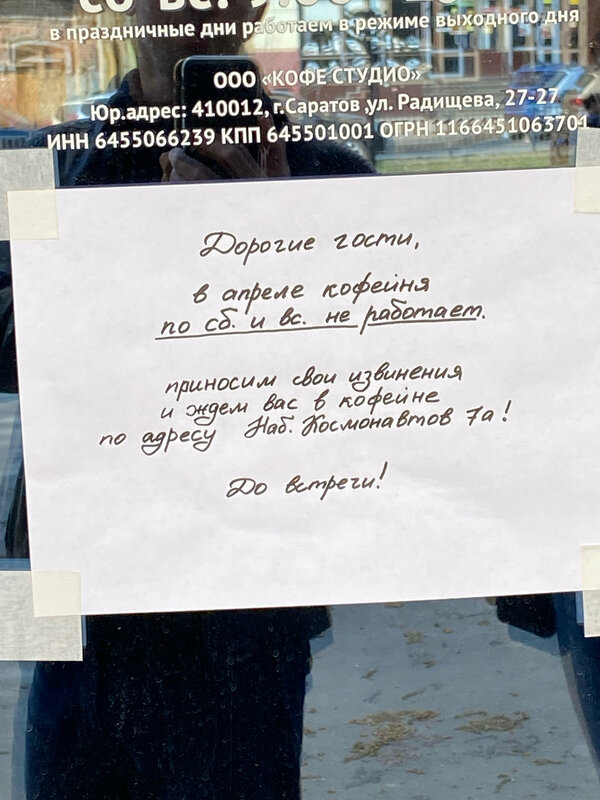 в праздничные дни работаем в режиме выходного дня
ООО «КОФЕ СТУДИО»
Юр.адрес: 410012, г.Саратов ,ул. Радищева, 27-27
ИНН 6455066239 КПП 645501001 ОГРН 1166451063701
Дорогие гости,
в апреле кофейня
по сб. и вс. не работает.
приносим свои извинения
и ждем вас в кофейне
по адресу Наб. Космонавтов 7а!
До встречи!